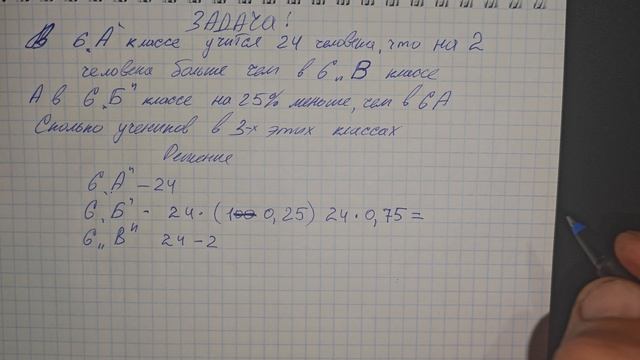 ЗАДАЧА!
В 6 "А" классе учится 24 человека, что на 2
человека больше чем в 6 "В" классе
А в 6 "Б" классе на 25% меньше, чем в 6А
Сколько учеников в 3-х этих классах
Решение
6 "А" - 24
6 "Б" - 24 · (100 0,25) 24 · 0,75 =
6 "В" 24 - 2